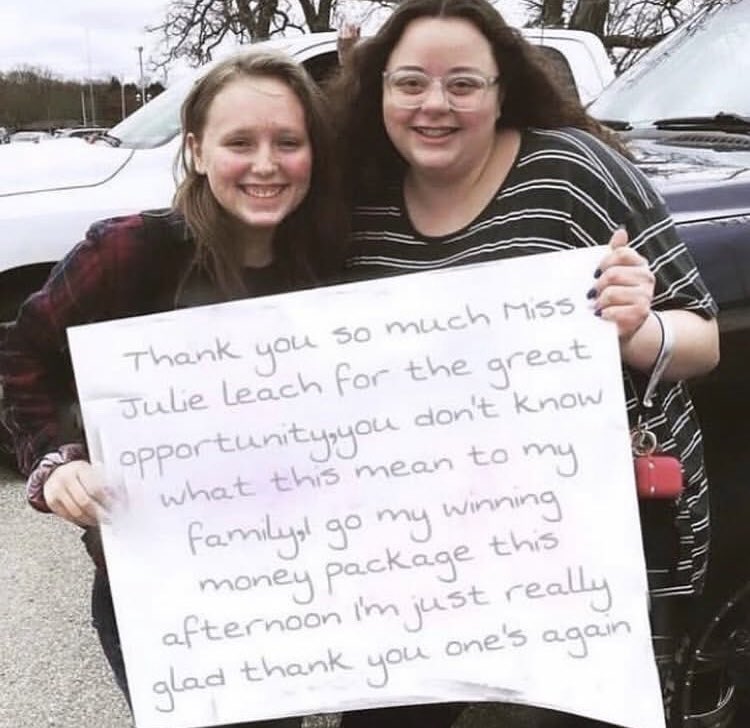 Thank you so much Miss
Julie Leach for the great
opportunity,you don't know
what this mean to my
family,I go my winning
money package this
afternoon I'm just really
glad thank you one's again